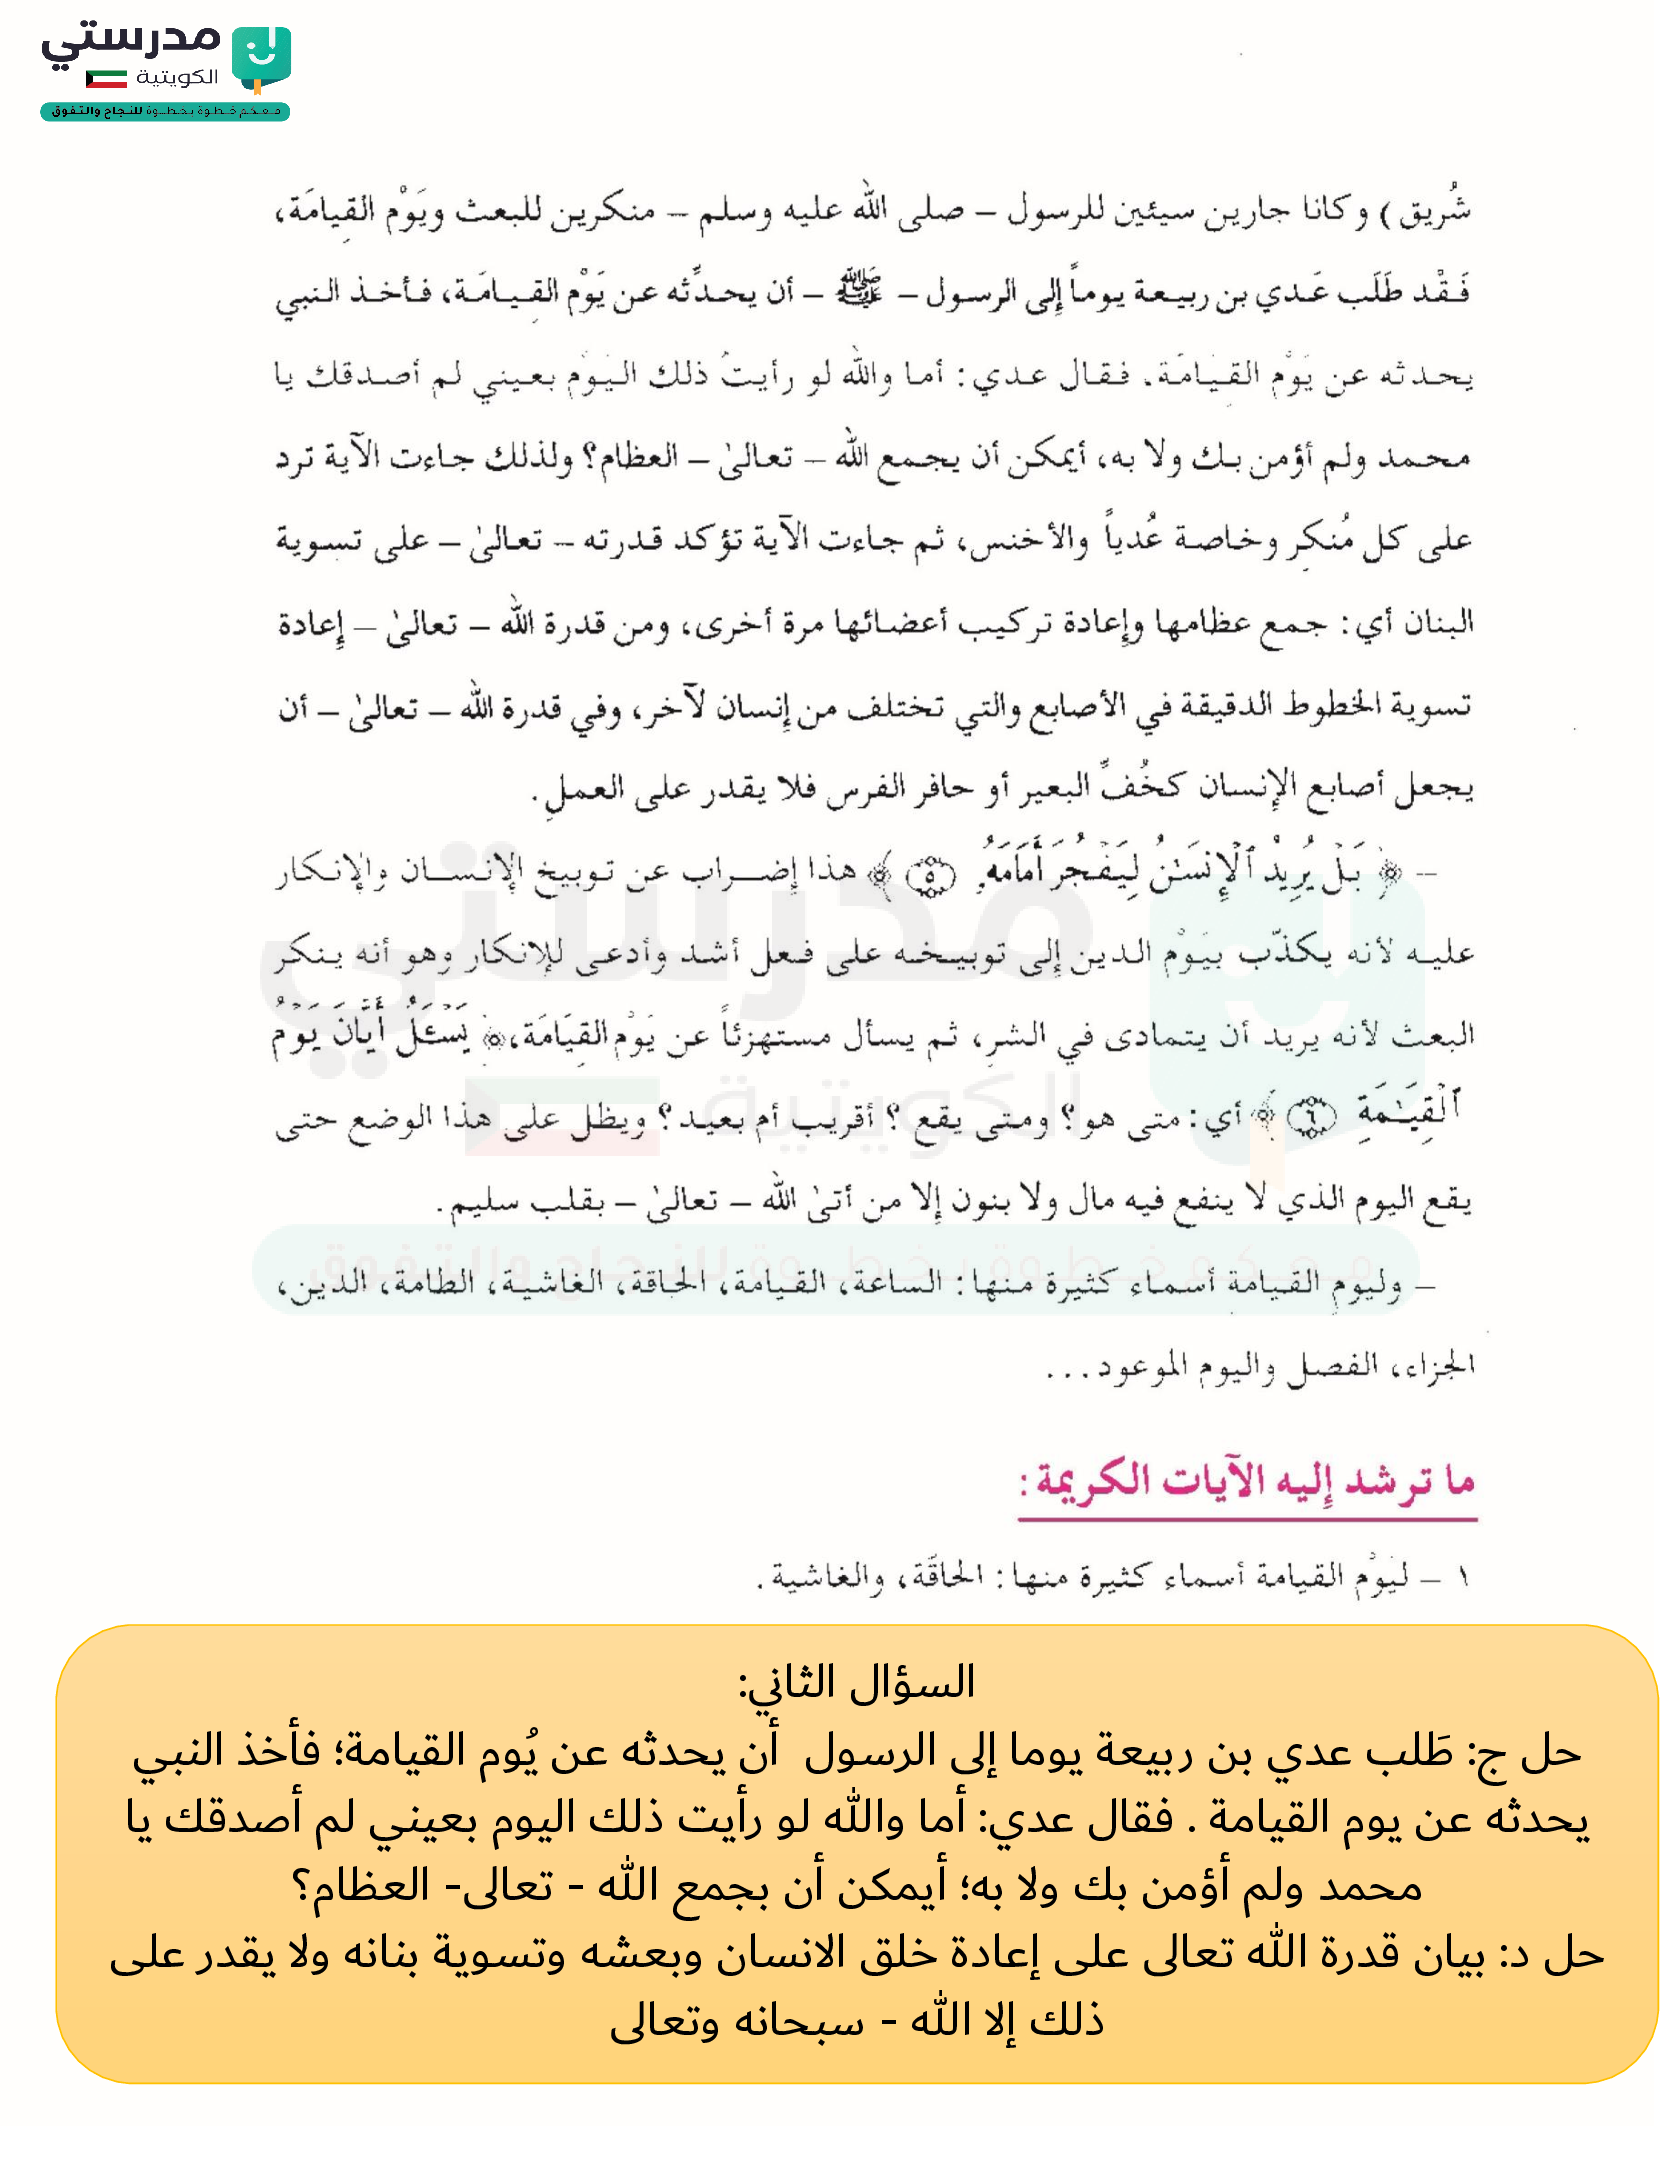 مدرستي
الكويتية
معكم خطوة بخطوة للنجاح والتفوق
شُريق) وكانا جارين سيئين للرسول – صلى الله عليه وسلم – منكرين للبعث ويَوْم القِيامَة،
فَقْد طَلَب عَدي بن ربيعة يوماً إلى الرسول – ﷺ – أن يحدِّثه عن يَوْم القِيامَة، فأخذ النبي
يحدثه عن يَوْم القِيَامَة. فقال عدي: أما والله لو رأيتُ ذلك اليَوْم بعيني لم أصدقك يا
محمد ولم أؤمن بك ولا به، أيمكن أن يجمع الله – تعالىٰ – العظام؟ ولذلك جاءت الآية ترد
على كل مُنكِر وخاصة عُدياً والأخنس، ثم جاءت الآية تؤكد قدرته – تعالىٰ – على تسوية
البنان أي: جمع عظامها وإعادة تركيب أعضائها مرة أخرى، ومن قدرة الله – تعالىٰ – إعادة
تسوية الخطوط الدقيقة في الأصابع والتي تختلف من إنسان لآخر، وفي قدرة الله – تعالىٰ – أن
يجعل أصابع الإنسان كخُفِّ البعير أو حافر الفرس فلا يقدر على العملِ.
– ﴿ بَلْ يُرِيدُ ٱلْإِنسَـٰنُ لِيَفْجُرَ أَمَامَهُۥ ٥ ﴾ هذا إضراب عن توبيخ الإنسان والإنكار
عليه لأنه يكذّب بيَوْم الدين إلى توبيخه على فعل أشد وأدعى للإنكار وهو أنه ينكر
البعث لأنه يريد أن يتمادى في الشرِ، ثم يسأل مستهزئاً عن يَوْم القِيَامَة، ﴿ يَسْـَٔلُ أَيَّانَ يَوْمُ
ٱلْقِيَـٰمَةِ ٦ ﴾ أي: متى هو؟ ومتى يقع؟ أقريب أم بعيد؟ ويظل على هذا الوضع حتى
يقع اليوم الذي لا ينفع فيه مال ولا بنون إلا من أتىٰ الله – تعالىٰ – بقلب سليم.
– وليوم القيامةِ أسماء كثيرة منها: الساعة، القيامة، الحاقة، الغاشية، الطامة، الدين،
الجزاء، الفصل واليوم الموعود...
ما ترشد إليه الآيات الكريمة:
١ – ليَوْم القيامة أسماء كثيرة منها: الحاقَّة، والغاشية.
السؤال الثاني:
حل ج: طَلب عدي بن ربيعة يوما إلى الرسول أن يحدثه عن يُوم القيامة؛ فأخذ النبي
يحدثه عن يوم القيامة . فقال عدي: أما والله لو رأيت ذلك اليوم بعيني لم أصدقك يا
محمد ولم أؤمن بك ولا به؛ أيمكن أن بجمع الله - تعالى- العظام؟
حل د: بيان قدرة الله تعالى على إعادة خلق الانسان وبعشه وتسوية بنانه ولا يقدر على
ذلك إلا الله - سبحانه وتعالى